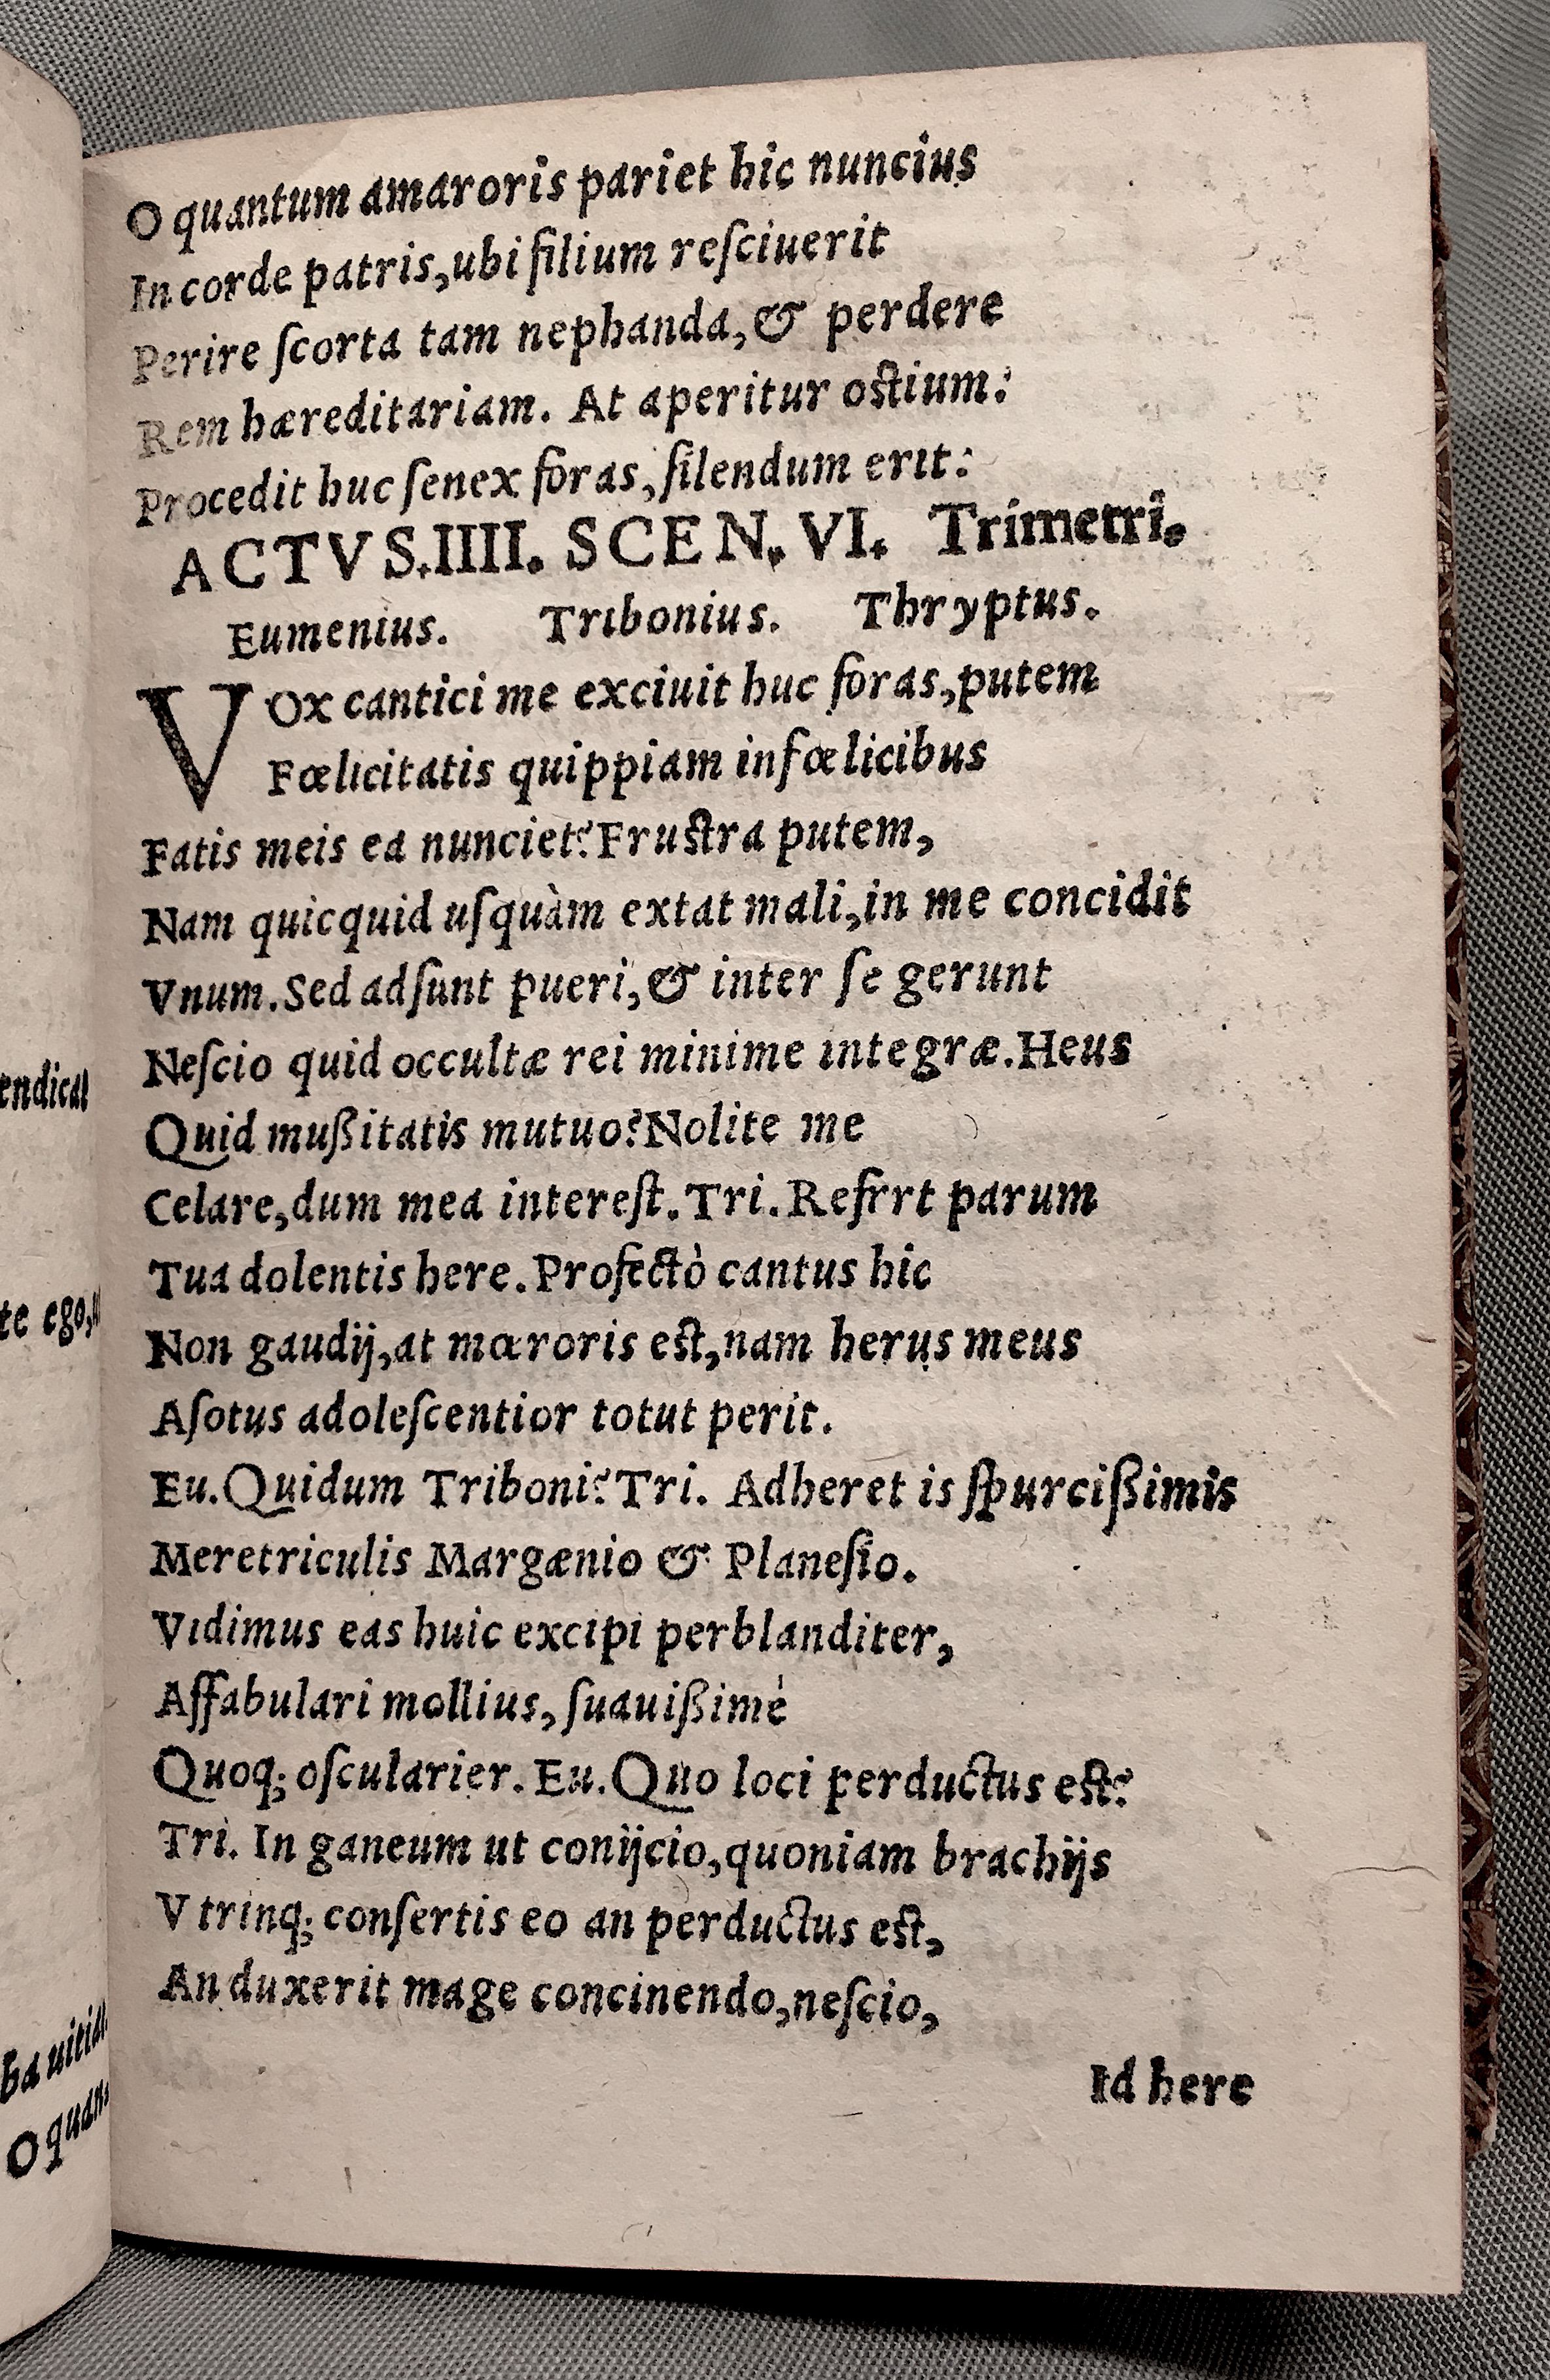 O quantum amaroris pariet hic nuncius
In corde patris,ubi filium reſciuerit
Perire ſcorta tam nephanda,& perdere
Rem hæreditariam. At aperitur oſtium:
Procedit huc ſenex foras, ſilendum erit:
ACTVS.IIII. SCEN. VI. Trimetri.
Eumenius. Tribonius. Thryptus.
VOx cantici me exciuit huc foras,putem
Fœlicitatis quippiam infœlicibus
Fatis meis ea nunciet?Fruſtra putem,
Nam quicquid uſquàm extat mali,in me concidit
Vnum.Sed adſunt pueri,& inter ſe gerunt
Neſcio quid occultæ rei minime integræ.Heus
Quid mußitatis mutuo?Nolite me
Celare,dum mea intereſt.Tri.Refrrt parum
Tua dolentis here.Profectò cantus hic
Non gaudij,at mœroris eſt,nam herus meus
Aſotus adoleſcentior totut perit.
Eu.Quidum Triboni?Tri. Adheret is ſpurcißimis
Meretriculis Margænio & Planeſio.
Vidimus eas huic excipi perblanditer,
Affabulari mollius, ſuauißimè
Quoq; oſcularier. Eu.Quo loci perductus eſt?
Tri. In ganeum ut conijcio,quoniam brachijs
Vtrinq; conſertis eo an perductus eſt,
An duxerit mage concinendo,neſcio,
Id here
endicat
te ego,
O quan